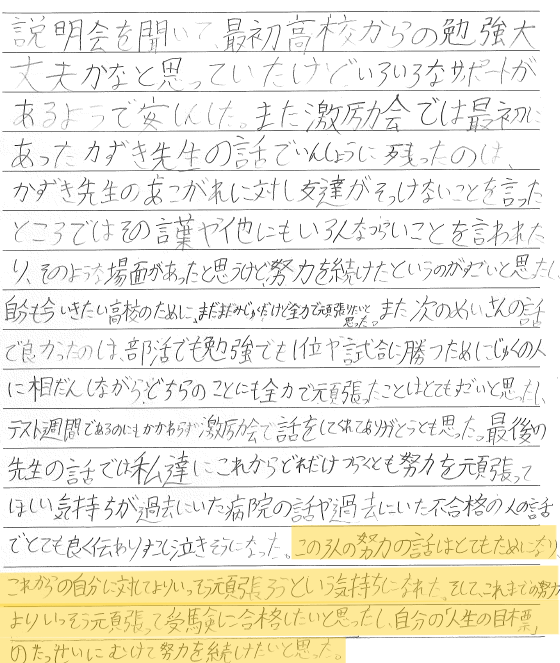 説明会を聞いて、最初高校からの勉強大
丈夫かなと思っていたけどいろいろなサポートが
あるようで安しんした。また激励会では最初に
あったかずき先生の話でいんしょうに残ったのは、
かずき先生のあこがれに対し友達がそっけないことを言った
ところではその言葉や他にもいろんなつらいことを言われた
り、そのような場面があったと思うけど、努力を続けたというのがすごいと思たし、
自分も今いきたい高校のために、まだまだみじゅくだけど全力で頑張りたいと
思った。また次のめいさんの話
で良かったのは、部活でも勉強でも1位や試合に勝つためにじゅくの人
に相だんしながらどちらのことにも全力で頑張ったことはとてもすごいと思ったし、
テスト週間であるのにもかかわらず激励会で話をしてくれてありがとうとも思った。最後の
先生の話では私達にこれからどれだけつらくとも努力を頑張って
ほしい気持ちが過去にいた病院の話や過去にいた不合格の人の話
でとても良く伝わりすこし泣きそうになった。この3人の努力の話はとてもためになり
これからの自分に対してよりいっそう頑張ろうという気持ちになれた。そして、これまでの努力
よりいっそう頑張って受験に合格したいと思ったし、自分の「人生の目標」
のたっせいにむけて努力を続けたいと思った。